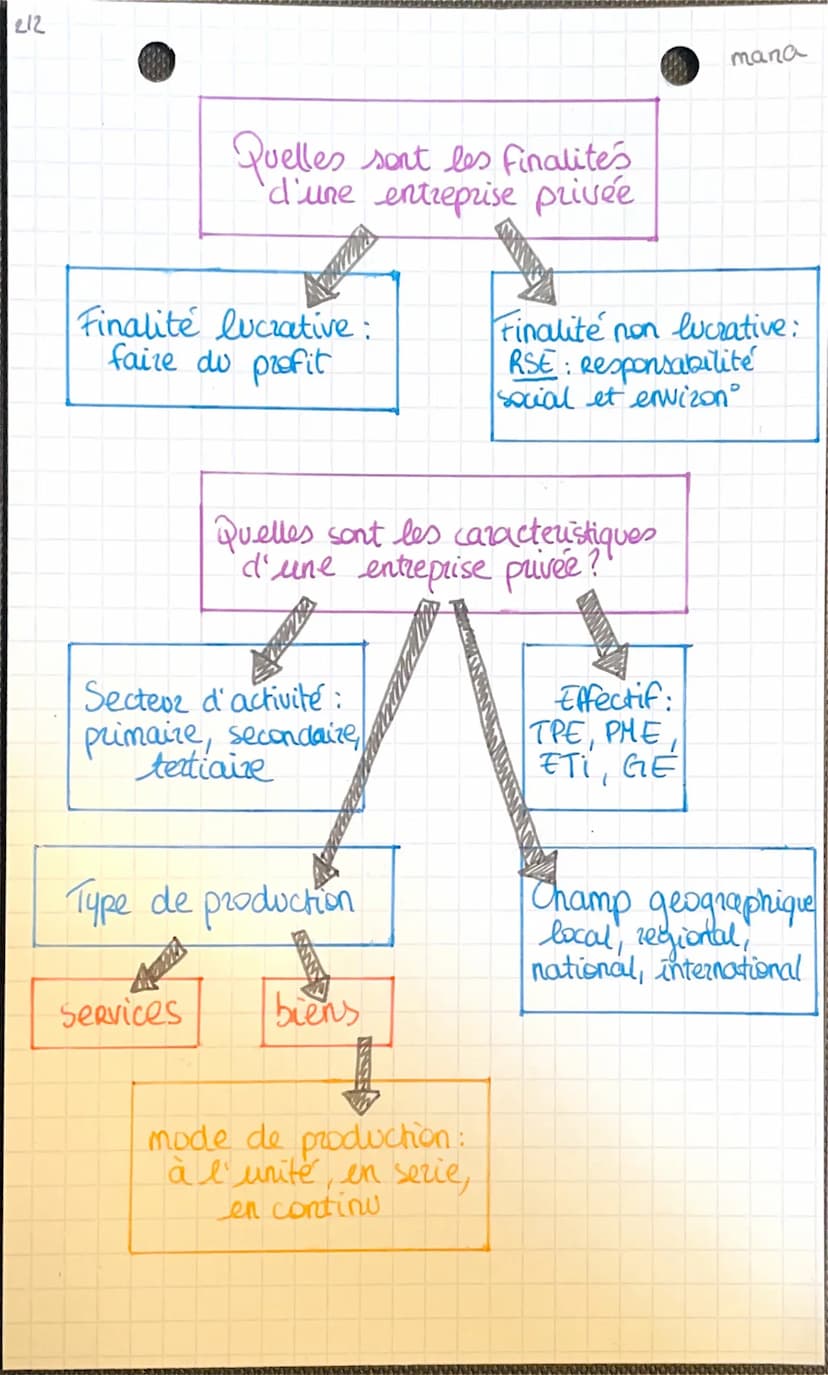 2/2
mana
Quelles sont les finalités
d'une entreprise privée
Finalité lucrative :
faire du profit
Finalité non lucrative :
RSE : Responsabilité
social et environ°
Quelles sont les caracteristiques
d'une entreprise privée ?
Secteur d'activité :
primaire, secondaire,
tertiaire
Effectif :
TPE, PME,
ETi, GE
Type de production
Champ geographique
local, regional,
national, international
services
biens
mode de production :
à l'unité, en serie,
en continu